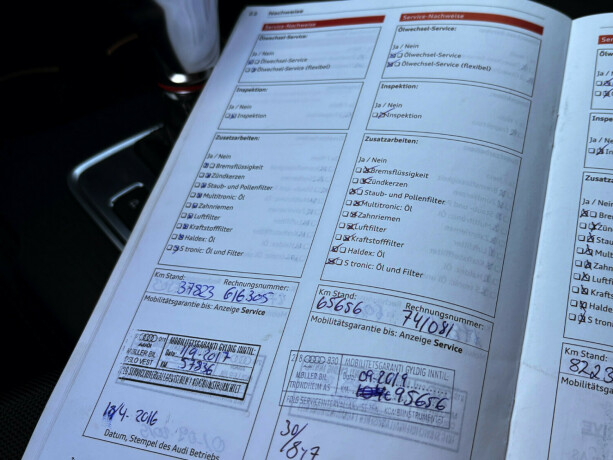 Nachweise
Service-Nachweise
Ölwechsel-Service:
Ja / Nein
Ölwechsel-Service
Ölwechsel-Service (flexibel)
Inspektion:
Ja / Nein
Inspektion
Zusatzarbeiten:
Ja / Nein
Bremsflüssigkeit
Zündkerzen
Staub- und Pollenfilter
Multitronic: Öl
Zahnriemen
Luftfilter
Kraftstofffilter
Haldex: Öl
S tronic: Öl und Filter
Km Stand: Rechnungsnummer:
37823 616305
Mobilitätsgarantie bis: Anzeige Service
MOBILITETSGARANTI GYLDIG INNTIL
MØLLER BIL
OSLO VEST
Datum, Stempel des Audi Betriebs
Service-Nachweise
Ölwechsel-Service:
Ja / Nein
Ölwechsel-Service
Ölwechsel-Service (flexibel)
Inspektion:
Ja / Nein
Inspektion
Zusatzarbeiten:
Ja / Nein
Bremsflüssigkeit
Zündkerzen
Staub- und Pollenfilter
Multitronic: Öl
Zahnriemen
Luftfilter
Kraftstofffilter
Haldex: Öl
S tronic: Öl und Filter
Km Stand: Rechnungsnummer:
65656 741081
Mobilitätsgarantie bis: Anzeige Service
MOBILITETSGARANTI GYLDIG INNTIL
MØLLER BIL
09-2019
95656
30/
Ja / Nein
Zusatz
Ja / Nein
Km Stand:
8223
Mobilitätsga